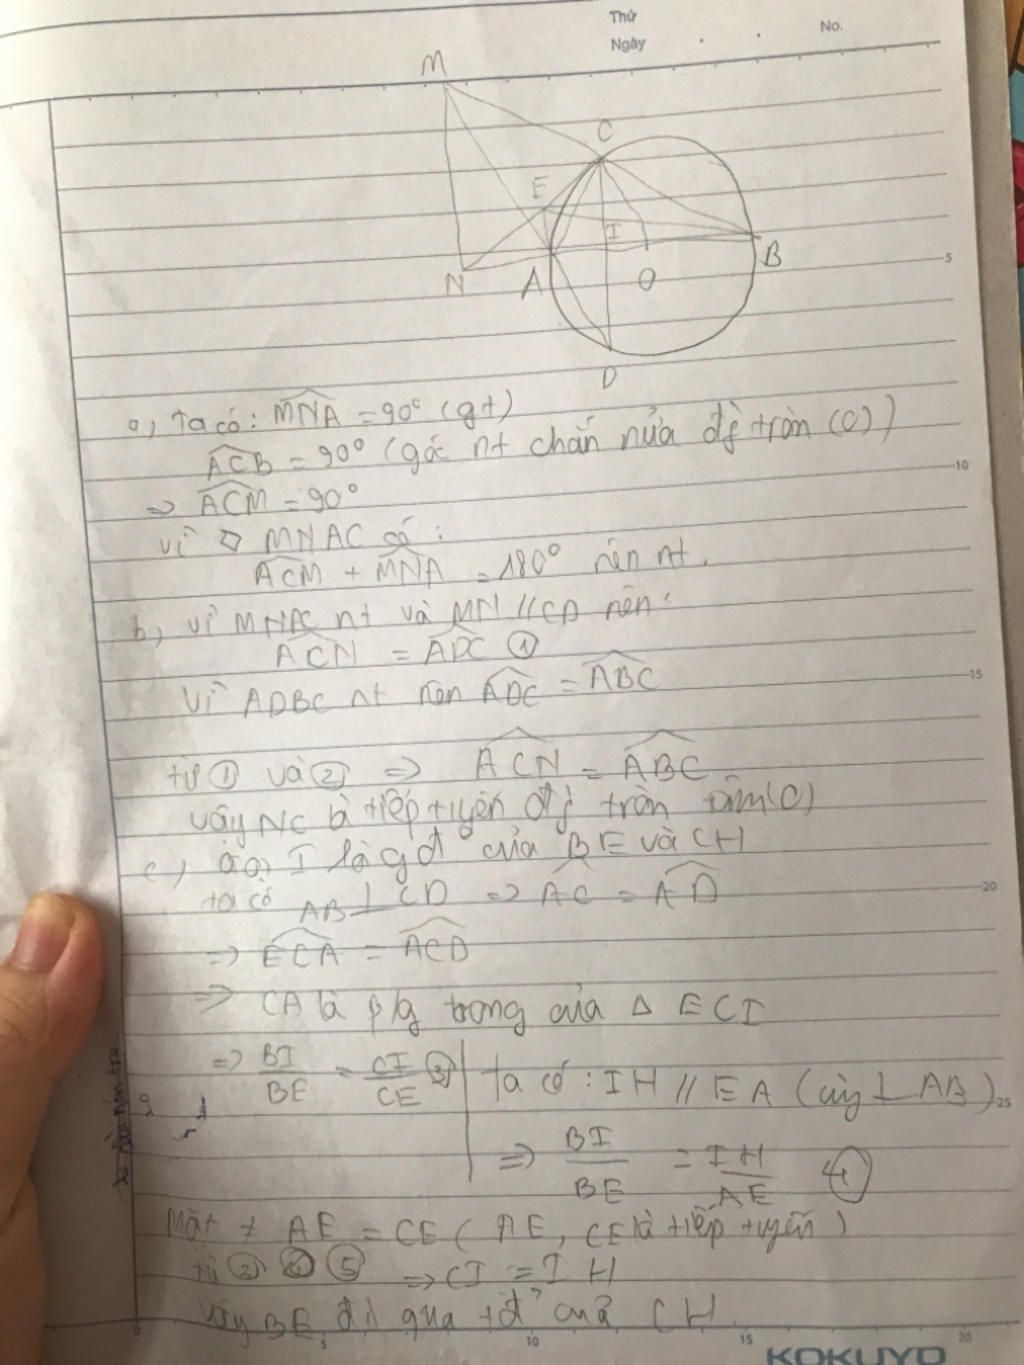 Thứ
Ngày
No.
M
C
E
I
N
A
O
B
D
a, ta có: MNA = 90° (gt)
ACB = 90° (góc nt chắn nửa đg tròn (O))
=> ACM = 90°
vì ▱ MNAC có:
ACM + MNA = 180° nên nt.
b, vì MNAC nt và MN // CD nên:
ACN = ADC ①
vì ADBC nt nên ADC = ABC
từ ① và ② => ACN = ABC
vậy NC là tiếp tuyến đg tròn tâm (O)
c, gọi I là gđ của BE và CH
ta có AB ⊥ CD => AC = AD
=> ECA = ACD
=> CA là p/g trong của Δ ECI
=> BI/BE = CI/CE ③
ta có: IH // EA (cùng ⊥ AB)
=> BI/BE = IH/AE ④
Mặt ≠ AE = CE (AE, CE là tiếp tuyến)
từ ③ ④ ⑤ => CI = IH
vậy BE đi qua tđ của CH
5
10
15
20
25
5
10
15
20
KOKUYO